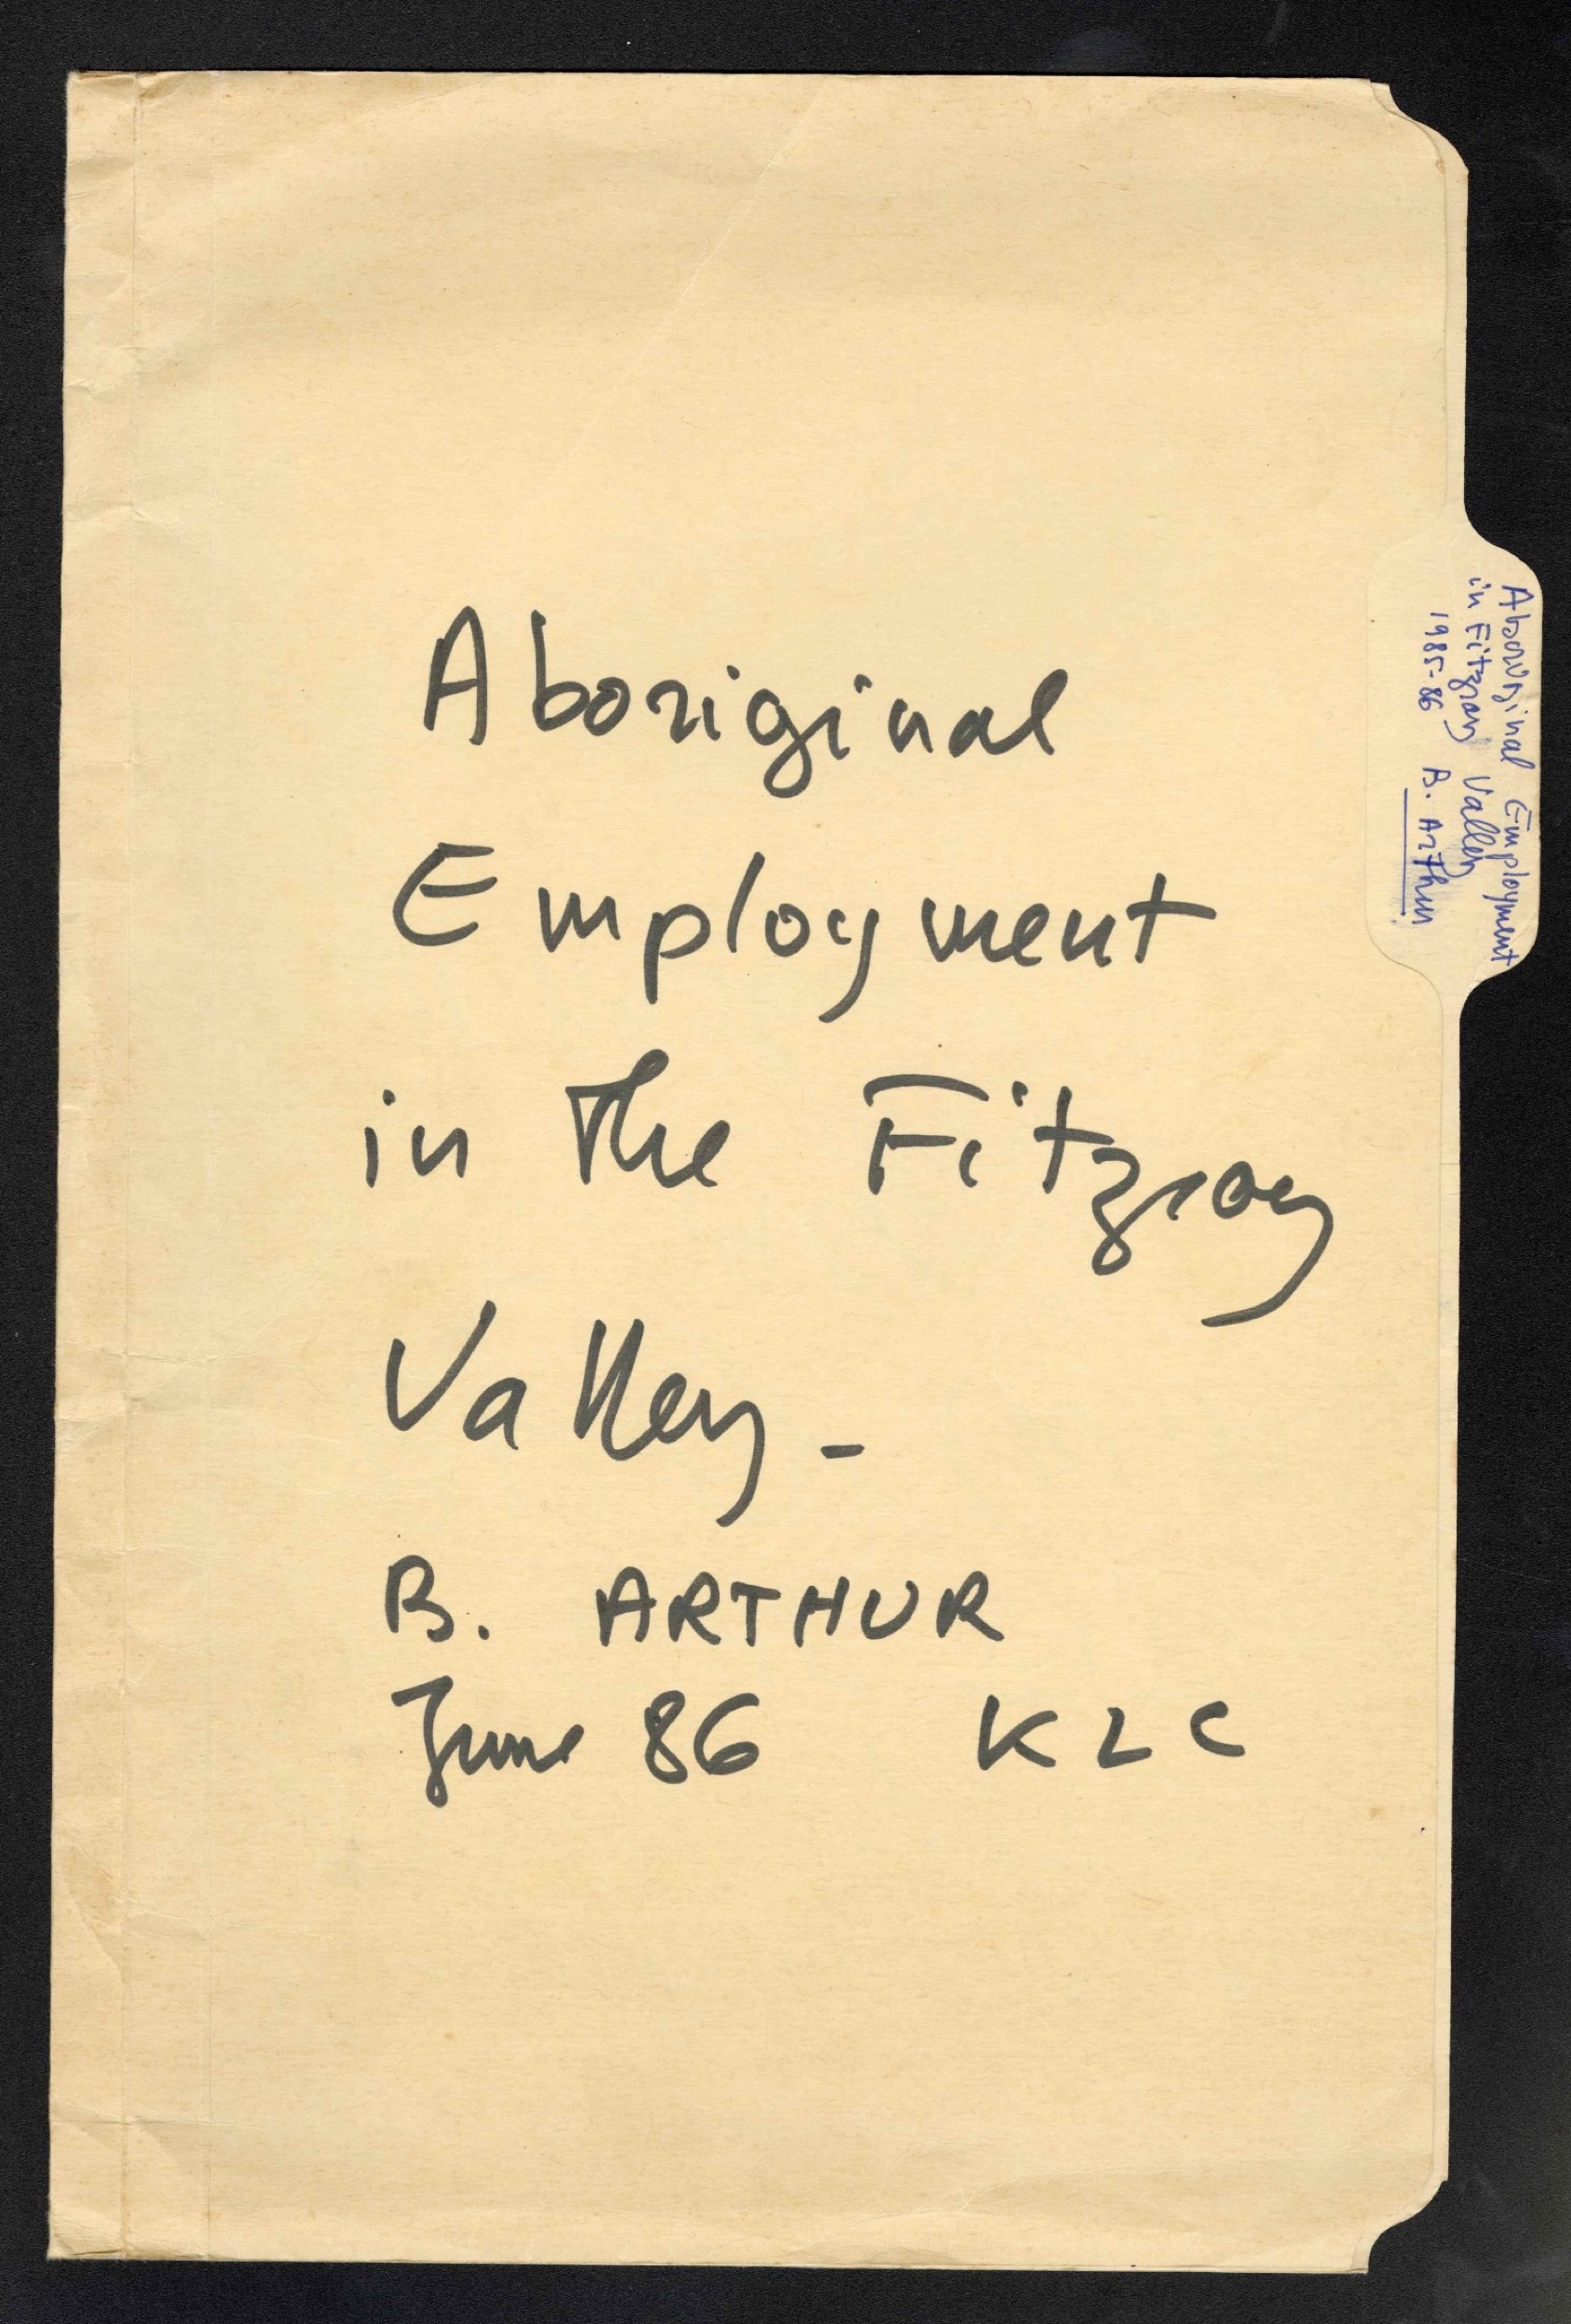 Aboriginal
Employment
in the Fitzroy
Valley -
B. ARTHUR
June 86 KLC
Aboriginal Employment
in Fitzroy Valley
1985-86 B. Arthur